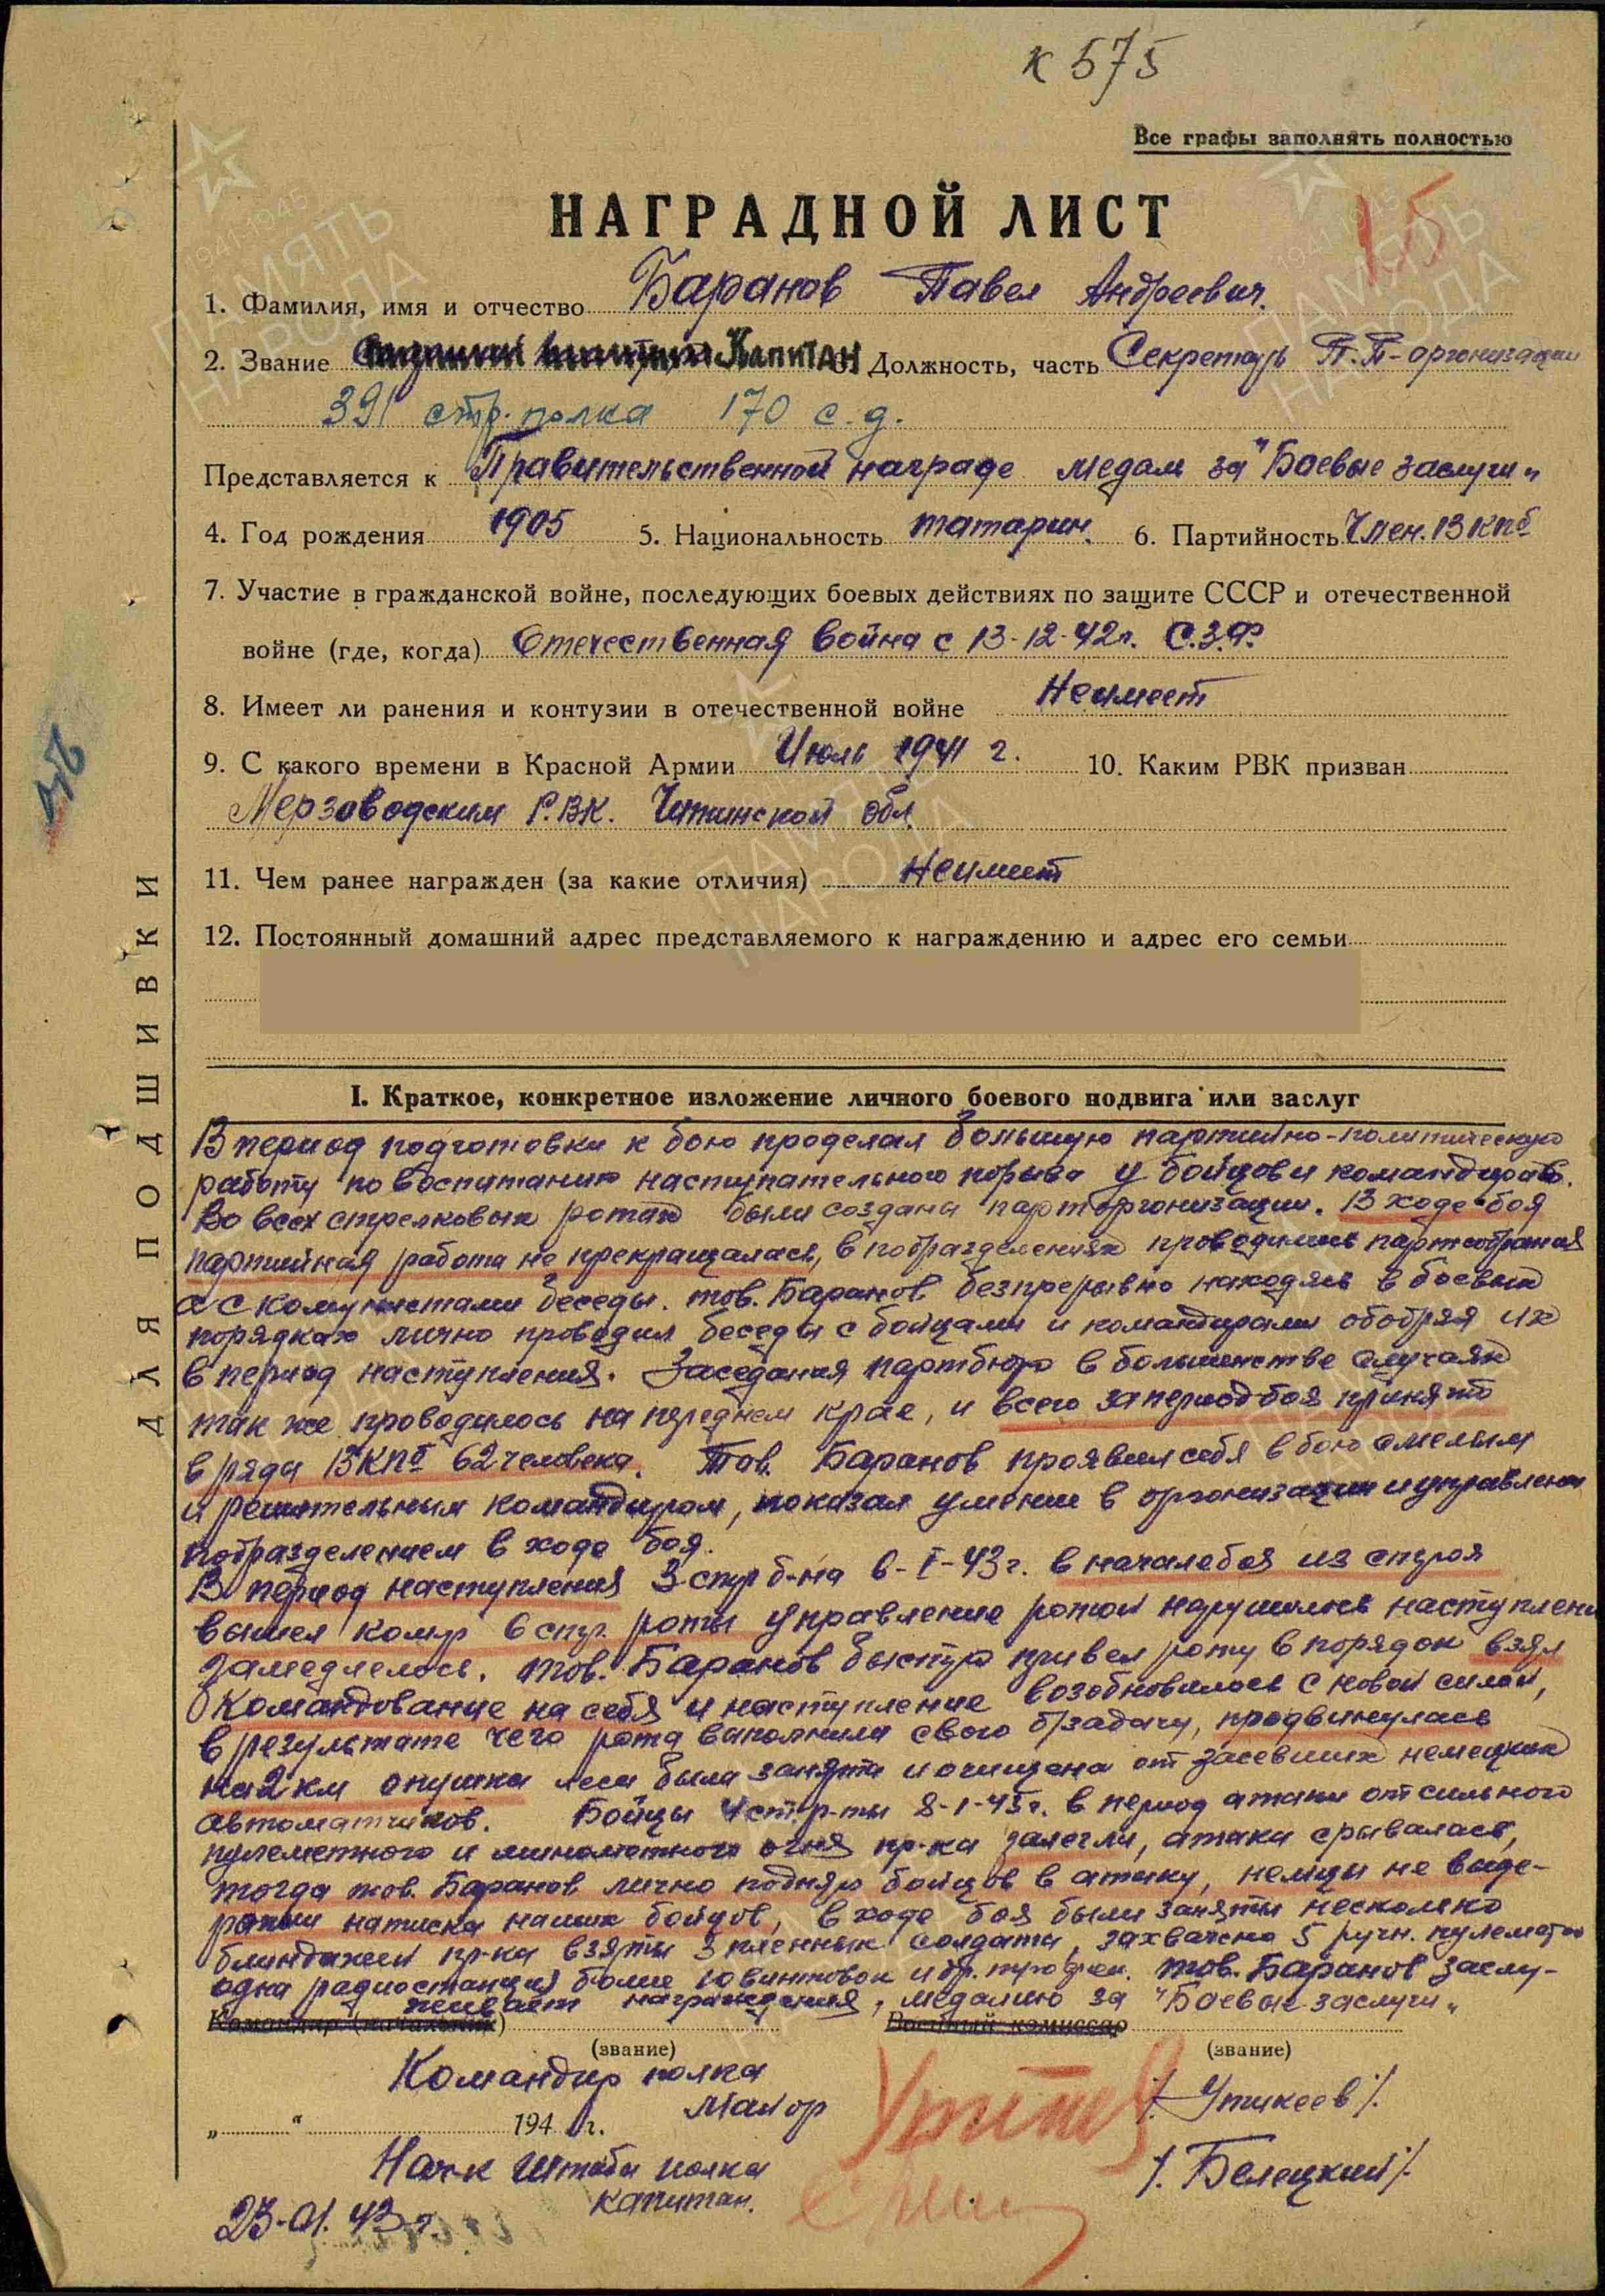 к 575
Все графы заполнять полностью
НАГРАДНОЙ ЛИСТ
1. Фамилия, имя и отчество Баранов Павел Андреевич.
2. Звание Капитан 3. Должность, часть Секретарь П.П-организации
391 стр. полка 170 с.д.
Представляется к Правительственной награде медали за "Боевые заслуги"
4. Год рождения 1905 5. Национальность татарин. 6. Партийность Член. ВКПб
7. Участие в гражданской войне, последующих боевых действиях по защите СССР и отечественной
войне (где, когда) Отечественная война с 13-12-42г. С.З.Ф.
8. Имеет ли ранения и контузии в отечественной войне Неимеет
9. С какого времени в Красной Армии Июль 1941 г. 10. Каким РВК призван
Р.В.К. Читинской обл.
11. Чем ранее награжден (за какие отличия) Неимеет
12. Постоянный домашний адрес представляемого к награждению и адрес его семьи
ДЛЯ ПОДШИВКИ
I. Краткое, конкретное изложение личного боевого подвига или заслуг
В период подготовки к бою проделал большую партийно-политическую
работу по воспитанию наступательного порыва у бойцов и командиров.
Во всех стрелковых ротах были созданы парторганизации. В ходе боя
партийная работа не прекращалась, в подразделениях проводились партсобрания
а с комунистами беседы. тов. Баранов безпрерывно находясь в боевых
порядках лично проводил беседы с бойцами и командирами ободряя их
в период наступления. Заседания партбюро в большинстве случаях
так же проводилось на переднем крае, и всего за период боя принято
в ряды ВКПб 62 человека. Тов. Баранов проявил себя в бою смелым
и решительным командиром, показал умение в организации и управлении
подразделением в ходе боя.
В период наступления 3 стр б-на 6-I-43г. в начале боя из строя
вышел комр 6 стр. роты управление ротой нарушилось наступлени
замедлелось. тов. Баранов быстро привел роту в порядок взял
командование на себя и наступление возобновилось с новой силой,
в результате чего рота выполнила свою б/задачу, продвинулась
на 2 км опушка леса была занята и очищена от засевших немецких
автоматчиков. Бойцы 4 стр. р-ты 8-1-43г. в период атаки от сильного
пулеметного и минометного огня пр-ка залегли, атака срывалась,
тогда тов. Баранов лично поднял бойцов в атаку, немцы не выде-
ржали натиска наших бойцов, в ходе боя были заняты несколько
блиндажей пр-ка взяты 3 пленных солдата, захвачено 5 ручн. пулеметов
одна радиостанция более 10 винтовок и др. трофеи. тов. Баранов заслу-
живает награждения, медалию за "Боевые заслуги"
Командир (начальник) Военный комиссар
(звание) (звание)
Командир полка
Майор /. Утикеев /.
„ “ 194 г.
Нач-к штаба полка
капитан. /. Белецкий /.
23-01.43 г.
ПАМЯТЬ НАРОДА
1941 1945